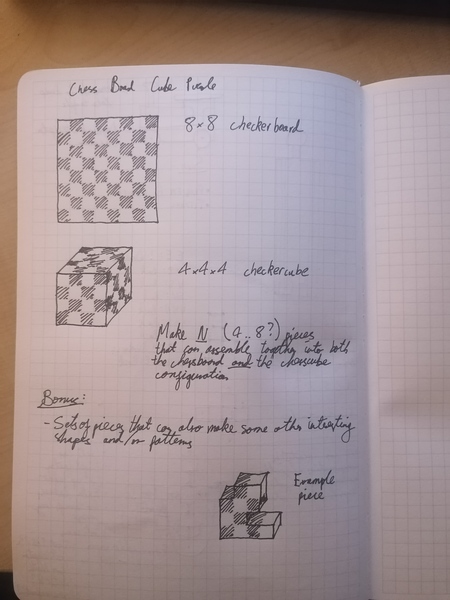 Chess Board Cube Puzzle
8×8 checkerboard
4×4×4 checkercube
Make N (4..8?) pieces
that can assemble together into both
the chessboard and the chesscube
configuration
Bonus:
- Sets of pieces that can also make some other interesting
shapes and/or patterns
Example
piece